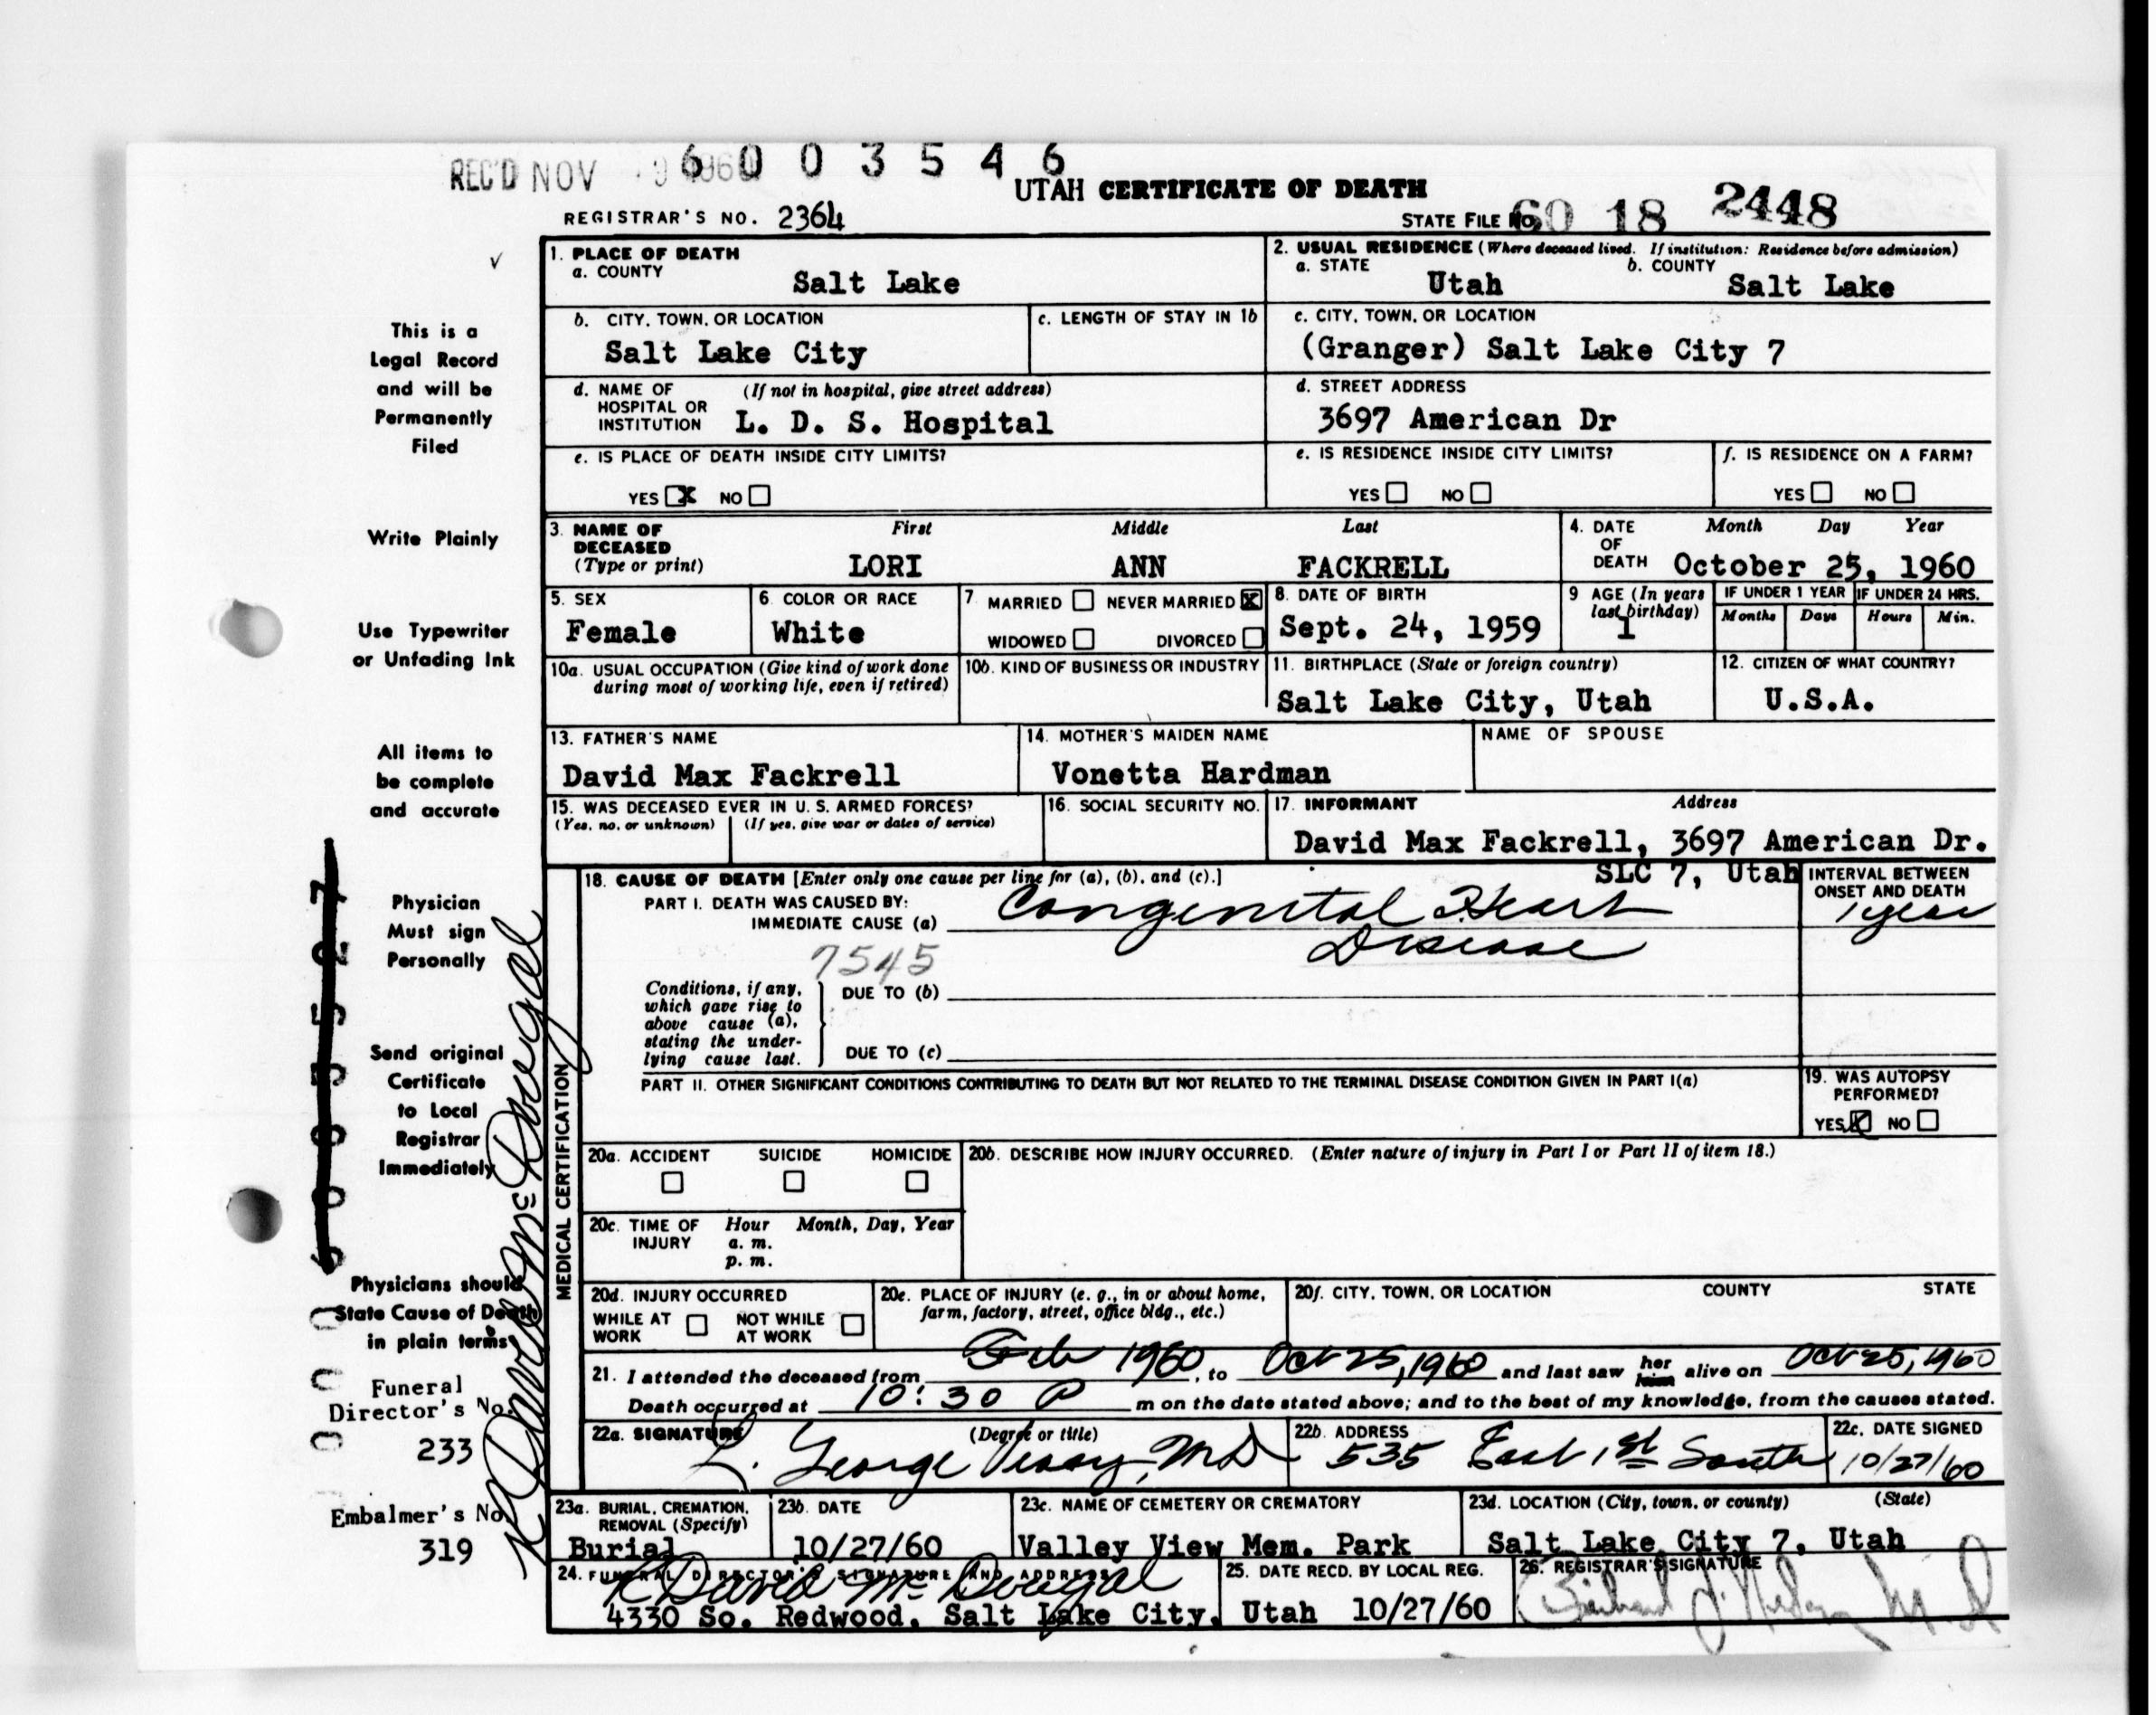 REC'D NOV 9 1960
6 0 0 3 5 4 6
UTAH CERTIFICATE OF DEATH
REGISTRAR'S NO. 2364
STATE FILE NO. 60 18 2448
1. PLACE OF DEATH
a. COUNTY
Salt Lake
2. USUAL RESIDENCE (Where deceased lived. If institution: Residence before admission)
a. STATE b. COUNTY
Utah Salt Lake
b. CITY, TOWN, OR LOCATION
Salt Lake City
c. LENGTH OF STAY IN 1b
c. CITY, TOWN, OR LOCATION
(Granger) Salt Lake City 7
d. NAME OF (If not in hospital, give street address)
HOSPITAL OR
INSTITUTION L. D. S. Hospital
d. STREET ADDRESS
3697 American Dr
e. IS PLACE OF DEATH INSIDE CITY LIMITS?
YES X NO
e. IS RESIDENCE INSIDE CITY LIMITS?
YES NO
f. IS RESIDENCE ON A FARM?
YES NO
3. NAME OF DECEASED (Type or print)
First Middle Last
LORI ANN FACKRELL
4. DATE OF DEATH
Month Day Year
October 25, 1960
5. SEX
Female
6. COLOR OR RACE
White
7. MARRIED NEVER MARRIED X
WIDOWED DIVORCED
8. DATE OF BIRTH
Sept. 24, 1959
9 AGE (In years last birthday)
1
IF UNDER 1 YEAR IF UNDER 24 HRS.
Months Days Hours Min.
10a. USUAL OCCUPATION (Give kind of work done
during most of working life, even if retired)
10b. KIND OF BUSINESS OR INDUSTRY
11. BIRTHPLACE (State or foreign country)
Salt Lake City, Utah
12. CITIZEN OF WHAT COUNTRY?
U.S.A.
13. FATHER'S NAME
David Max Fackrell
14. MOTHER'S MAIDEN NAME
Vonetta Hardman
NAME OF SPOUSE
15. WAS DECEASED EVER IN U. S. ARMED FORCES?
(Yes, no, or unknown) (If yes, give war or dates of service)
16. SOCIAL SECURITY NO.
17. INFORMANT Address
David Max Fackrell, 3697 American Dr.
SLC 7, Utah
18. CAUSE OF DEATH [Enter only one cause per line for (a), (b), and (c).]
PART I. DEATH WAS CAUSED BY:
IMMEDIATE CAUSE (a) Congenital Heart
Disease
INTERVAL BETWEEN
ONSET AND DEATH
1 year
7545
Conditions, if any,
which gave rise to
above cause (a),
stating the under-
lying cause last.
DUE TO (b)
DUE TO (c)
PART II. OTHER SIGNIFICANT CONDITIONS CONTRIBUTING TO DEATH BUT NOT RELATED TO THE TERMINAL DISEASE CONDITION GIVEN IN PART I(a)
19. WAS AUTOPSY
PERFORMED?
YES X NO
MEDICAL CERTIFICATION
20a. ACCIDENT SUICIDE HOMICIDE
20b. DESCRIBE HOW INJURY OCCURRED. (Enter nature of injury in Part I or Part II of item 18.)
20c. TIME OF INJURY
Hour Month, Day, Year
a. m.
p. m.
20d. INJURY OCCURRED
WHILE AT WORK NOT WHILE AT WORK
20e. PLACE OF INJURY (e. g., in or about home,
farm, factory, street, office bldg., etc.)
20f. CITY, TOWN, OR LOCATION COUNTY STATE
21. I attended the deceased from Feb 1960, to Oct 25, 1960 and last saw her him alive on Oct 25, 1960
Death occurred at 10:30 P m on the date stated above; and to the best of my knowledge, from the causes stated.
22a. SIGNATURE (Degree or title)
L. George Veasy, MD
22b. ADDRESS
535 East 1st South
22c. DATE SIGNED
10/27/60
23a. BURIAL, CREMATION,
REMOVAL (Specify)
Burial
23b. DATE
10/27/60
23c. NAME OF CEMETERY OR CREMATORY
Valley View Mem. Park
23d. LOCATION (City, town, or county) (State)
Salt Lake City 7, Utah
24. FUNERAL DIRECTOR'S SIGNATURE AND ADDRESS
K David McDougal
4330 So. Redwood, Salt Lake City, Utah
25. DATE RECD. BY LOCAL REG.
10/27/60
26. REGISTRAR'S SIGNATURE
This is a
Legal Record
and will be
Permanently
Filed
Write Plainly
Use Typewriter
or Unfading Ink
All items to
be complete
and accurate
Physician
Must sign
Personally
Send original
Certificate
to Local
Registrar
Immediately
Physicians should
State Cause of Death
in plain terms
Funeral
Director's No.
233
Embalmer's No.
319
K David McDougal